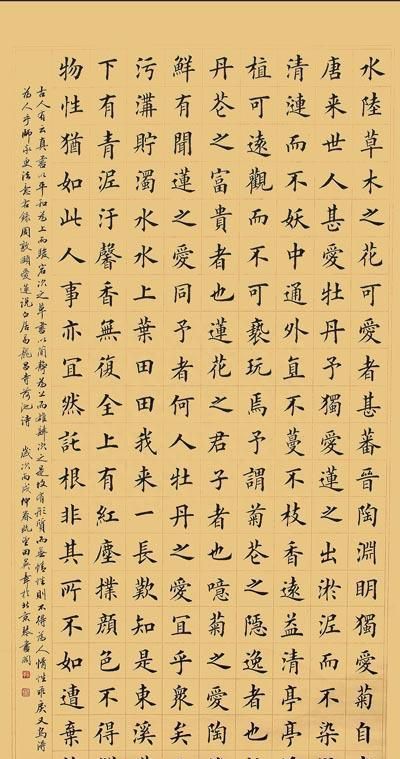 水陸草木之花可愛者甚蕃晉陶淵明獨愛菊自
唐来世人甚愛牡丹予獨愛蓮之出淤泥而不染
清漣而不妖中通外直不蔓不枝香遠益清亭亭
植可遠觀而不可褻玩焉予謂菊苍之隱逸者也
丹苍之富貴者也蓮花之君子者也噫菊之愛陶
鮮有聞蓮之愛同予者何人牡丹之愛宜乎眾矣
污溝貯濁水水上葉田田我来一長歎知是東溪
下有青泥汙馨香無復全上有紅塵撲顏色不得
物性猶如此人事亦宜然託根非其所不如遭棄
古人有云真書以平和為上而駿宕次之草書以簡靜為上而雄肆次之是故有形質而無情性則不得為人情性乖戾又烏得
為人乎師永意右錄周敦頤愛蓮說白居易龍昌寺荷池詩 歲次丙戌仲春田英章於北京琴書閣